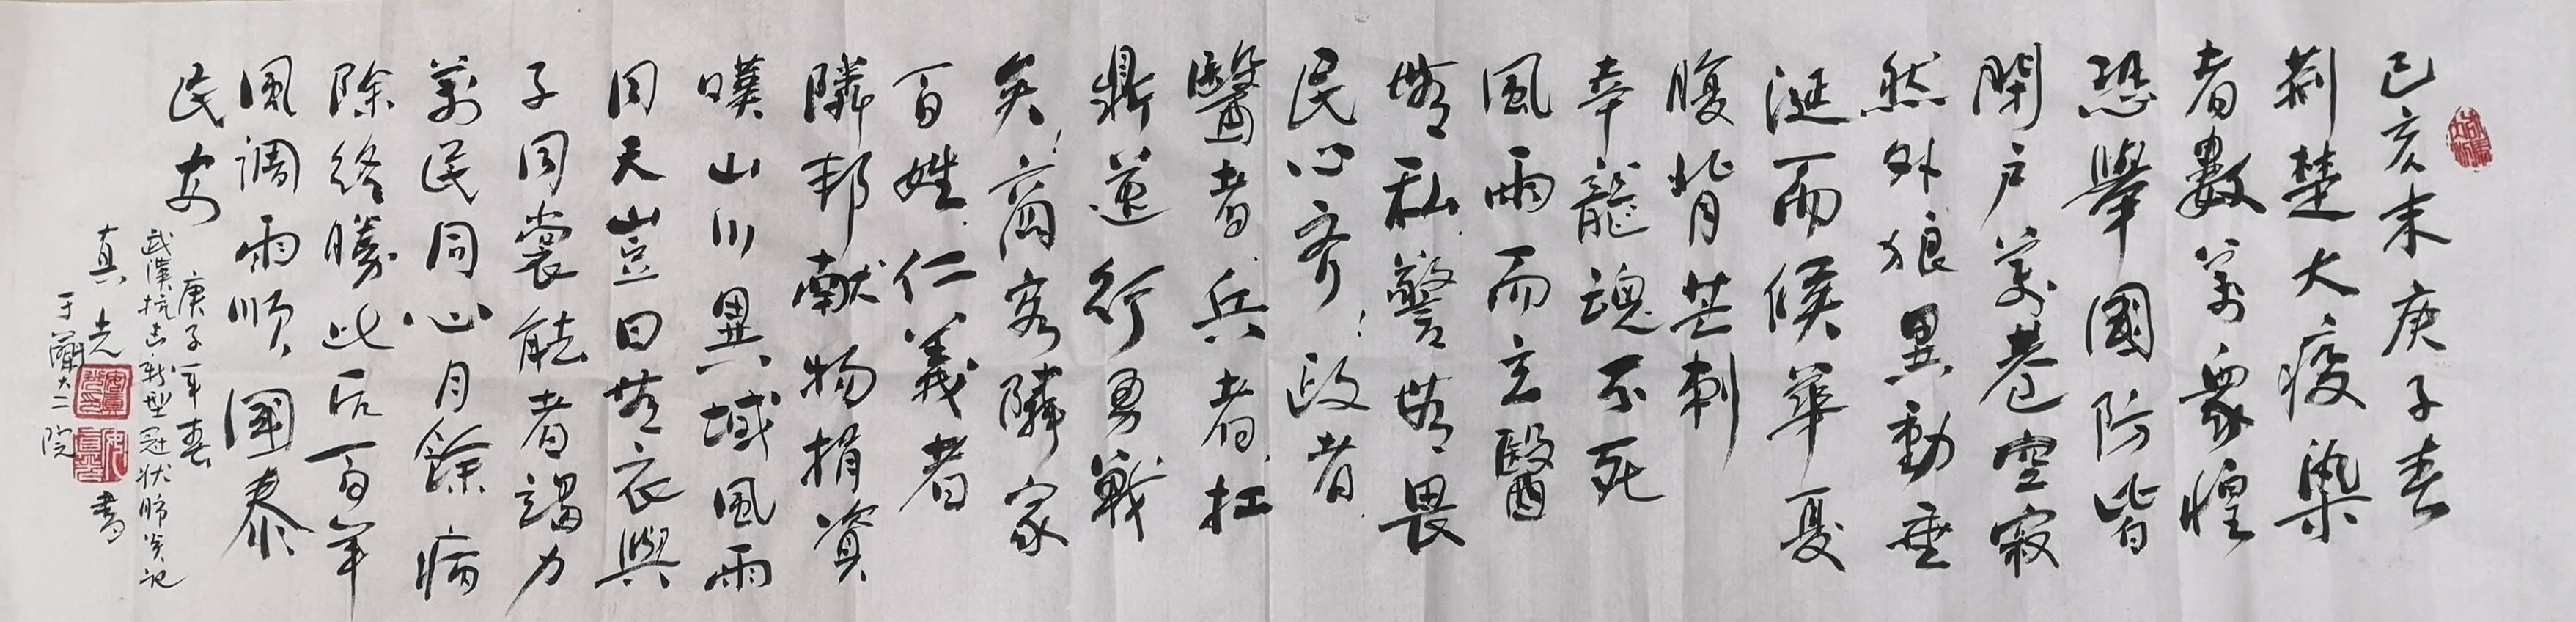 己亥末庚子春
荆楚大疫染
者數萬眾惶
恐舉國防皆
閉戶萬巷空寂
然外狼異動垂
涎而候華憂
腹背芒刺
幸龍魂不死
風雨而立醫
無私警無畏
民心齐政者
醫者兵者扛
鼎逆行勇戰
矣商客隣家
百姓仁義者
隣邦献物捐資
嘆山川異域風雨
同天豈曰無衣與
子同裳能者竭力
萬民同心月餘病
除終勝此后百年
風调雨順國泰
民安
庚子年春
武漢抗击新型冠状肺炎記
真光
書
于蘭大二院